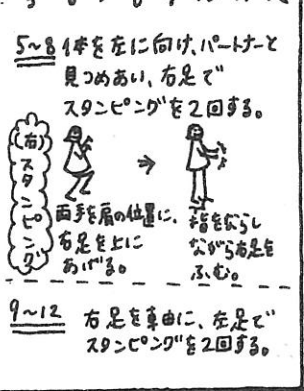 5~8 体を左に向け、パートナーと
見つめあい、右足で
スタンピングを2回する。
(右)スタンピング
両手を肩の位置に、
右足を上に
あげる。
→
指をならし
ながら右足を
ふむ。
9~12 右足を軸に、左足で
スタンピングを2回する。